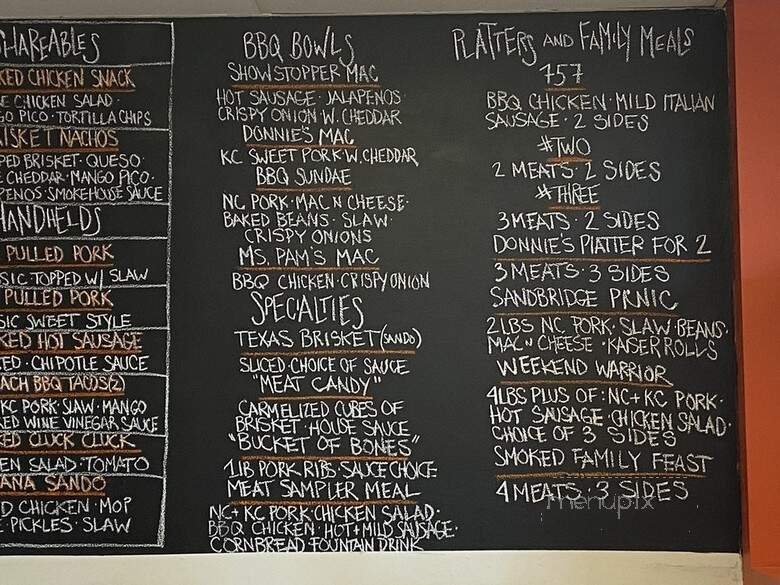 SHAREABLES
KED CHICKEN SNACK
E CHICKEN SALAD ·
GO PICO · TORTILLA CHIPS
ISKET NACHOS
PED BRISKET · QUESO ·
E CHEDDAR · MANGO PICO ·
PENOS · SMOKEHOUSE SAUCE
HANDHELDS
PULLED PORK
SIC TOPPED W/ SLAW
PULLED PORK
SIC SWEET STYLE
KED HOT SAUSAGE
ED · CHIPOTLE SAUCE
ACH BBQ TACOS (2)
KC PORK SLAW · MANGO
RED WINE VINEGAR SAUCE
KED CLUCK CLUCK
EN SALAD · TOMATO
ANA SANDO
D CHICKEN · MOP
E · PICKLES · SLAW
BBQ BOWLS
SHOWSTOPPER MAC
HOT SAUSAGE · JALAPENOS ·
CRISPY ONION W. CHEDDAR
DONNIE'S MAC
KC SWEET PORK W. CHEDDAR
BBQ SUNDAE
NC PORK · MAC N CHEESE ·
BAKED BEANS · SLAW ·
CRISPY ONIONS
MS. PAM'S MAC
BBQ CHICKEN · CRISPY ONION
SPECIALTIES
TEXAS BRISKET (SANDO)
SLICED · CHOICE OF SAUCE
"MEAT CANDY"
CARMELIZED CUBES OF
BRISKET · HOUSE SAUCE
"BUCKET OF BONES"
1 LB PORK RIBS · SAUCE CHOICE
MEAT SAMPLER MEAL
NC + KC PORK · CHICKEN SALAD ·
BBQ CHICKEN · HOT + MILD SAUSAGE ·
CORNBREAD FOUNTAIN DRINK
PLATTERS AND FAMILY MEALS
757
BBQ CHICKEN · MILD ITALIAN
SAUSAGE · 2 SIDES
#TWO
2 MEATS · 2 SIDES
#THREE
3 MEATS · 2 SIDES
DONNIE'S PLATTER FOR 2
3 MEATS · 3 SIDES
SANDBRIDGE PICNIC
2 LBS NC PORK · SLAW · BEANS ·
MAC N CHEESE · KAISER ROLLS
WEEKEND WARRIOR
4LBS PLUS OF: NC + KC PORK ·
HOT SAUSAGE · CHICKEN SALAD ·
CHOICE OF 3 SIDES
SMOKED FAMILY FEAST
4 MEATS · 3 SIDES
menupix